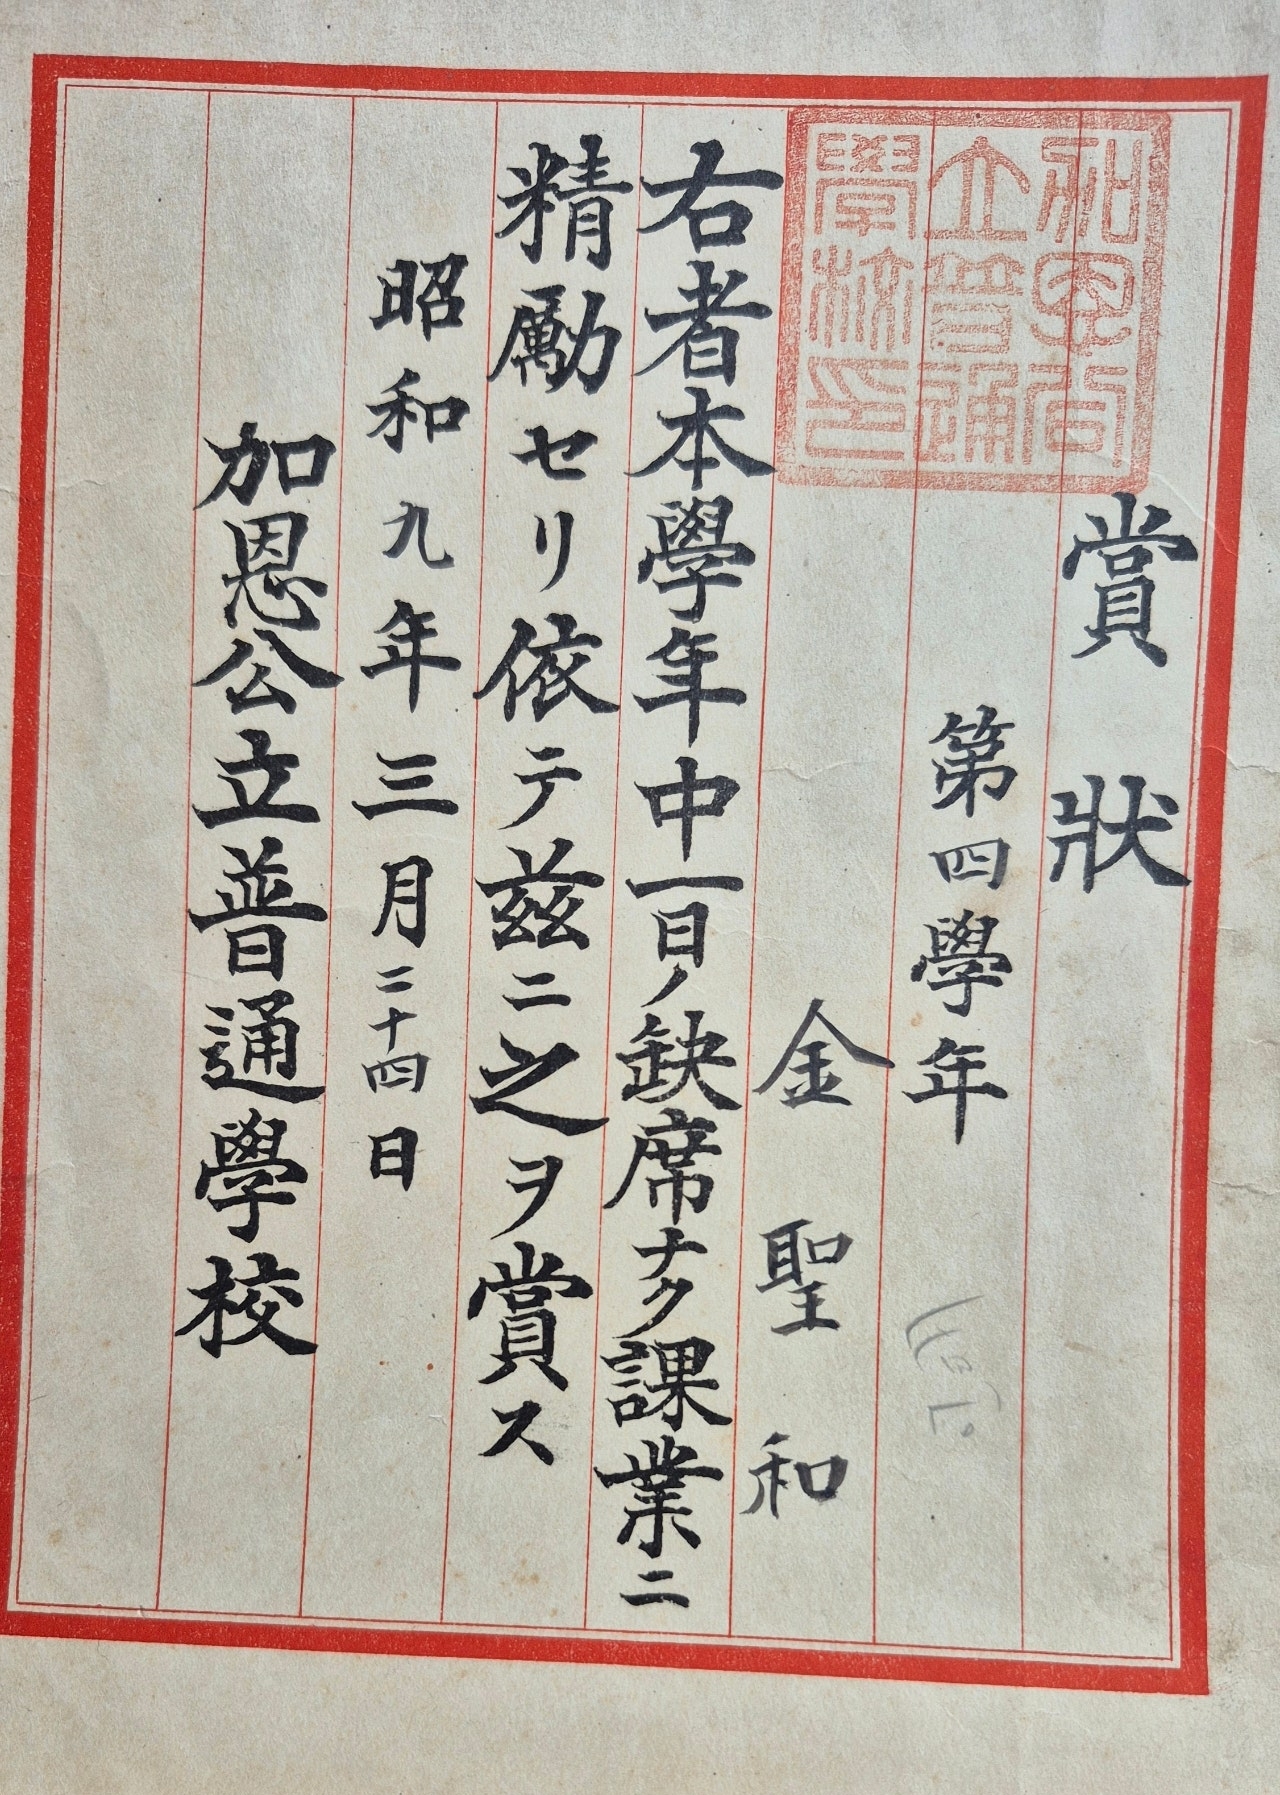 賞狀
第四學年
金聖和
右者本學年中一日ノ缺席ナク課業ニ
精勵セリ依テ茲ニ之ヲ賞ス
昭和九年三月二十四日
加恩公立普通學校
加恩公
立普通
學校印